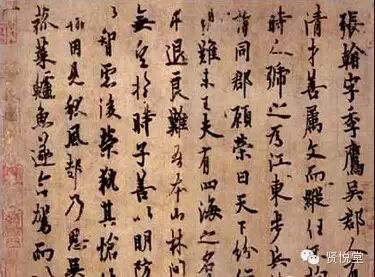 張翰字季鷹吳郡人有
清才善屬文而縱任
時人號之為江東步兵
謂同郡顧榮曰天下紛
難未已夫有四海之名
求退良難吾本山林間
無望於時子善以明防
智慮後榮執其愴
因見秋風起乃思吳
菰菜鱸魚遂命駕而
贤悦堂